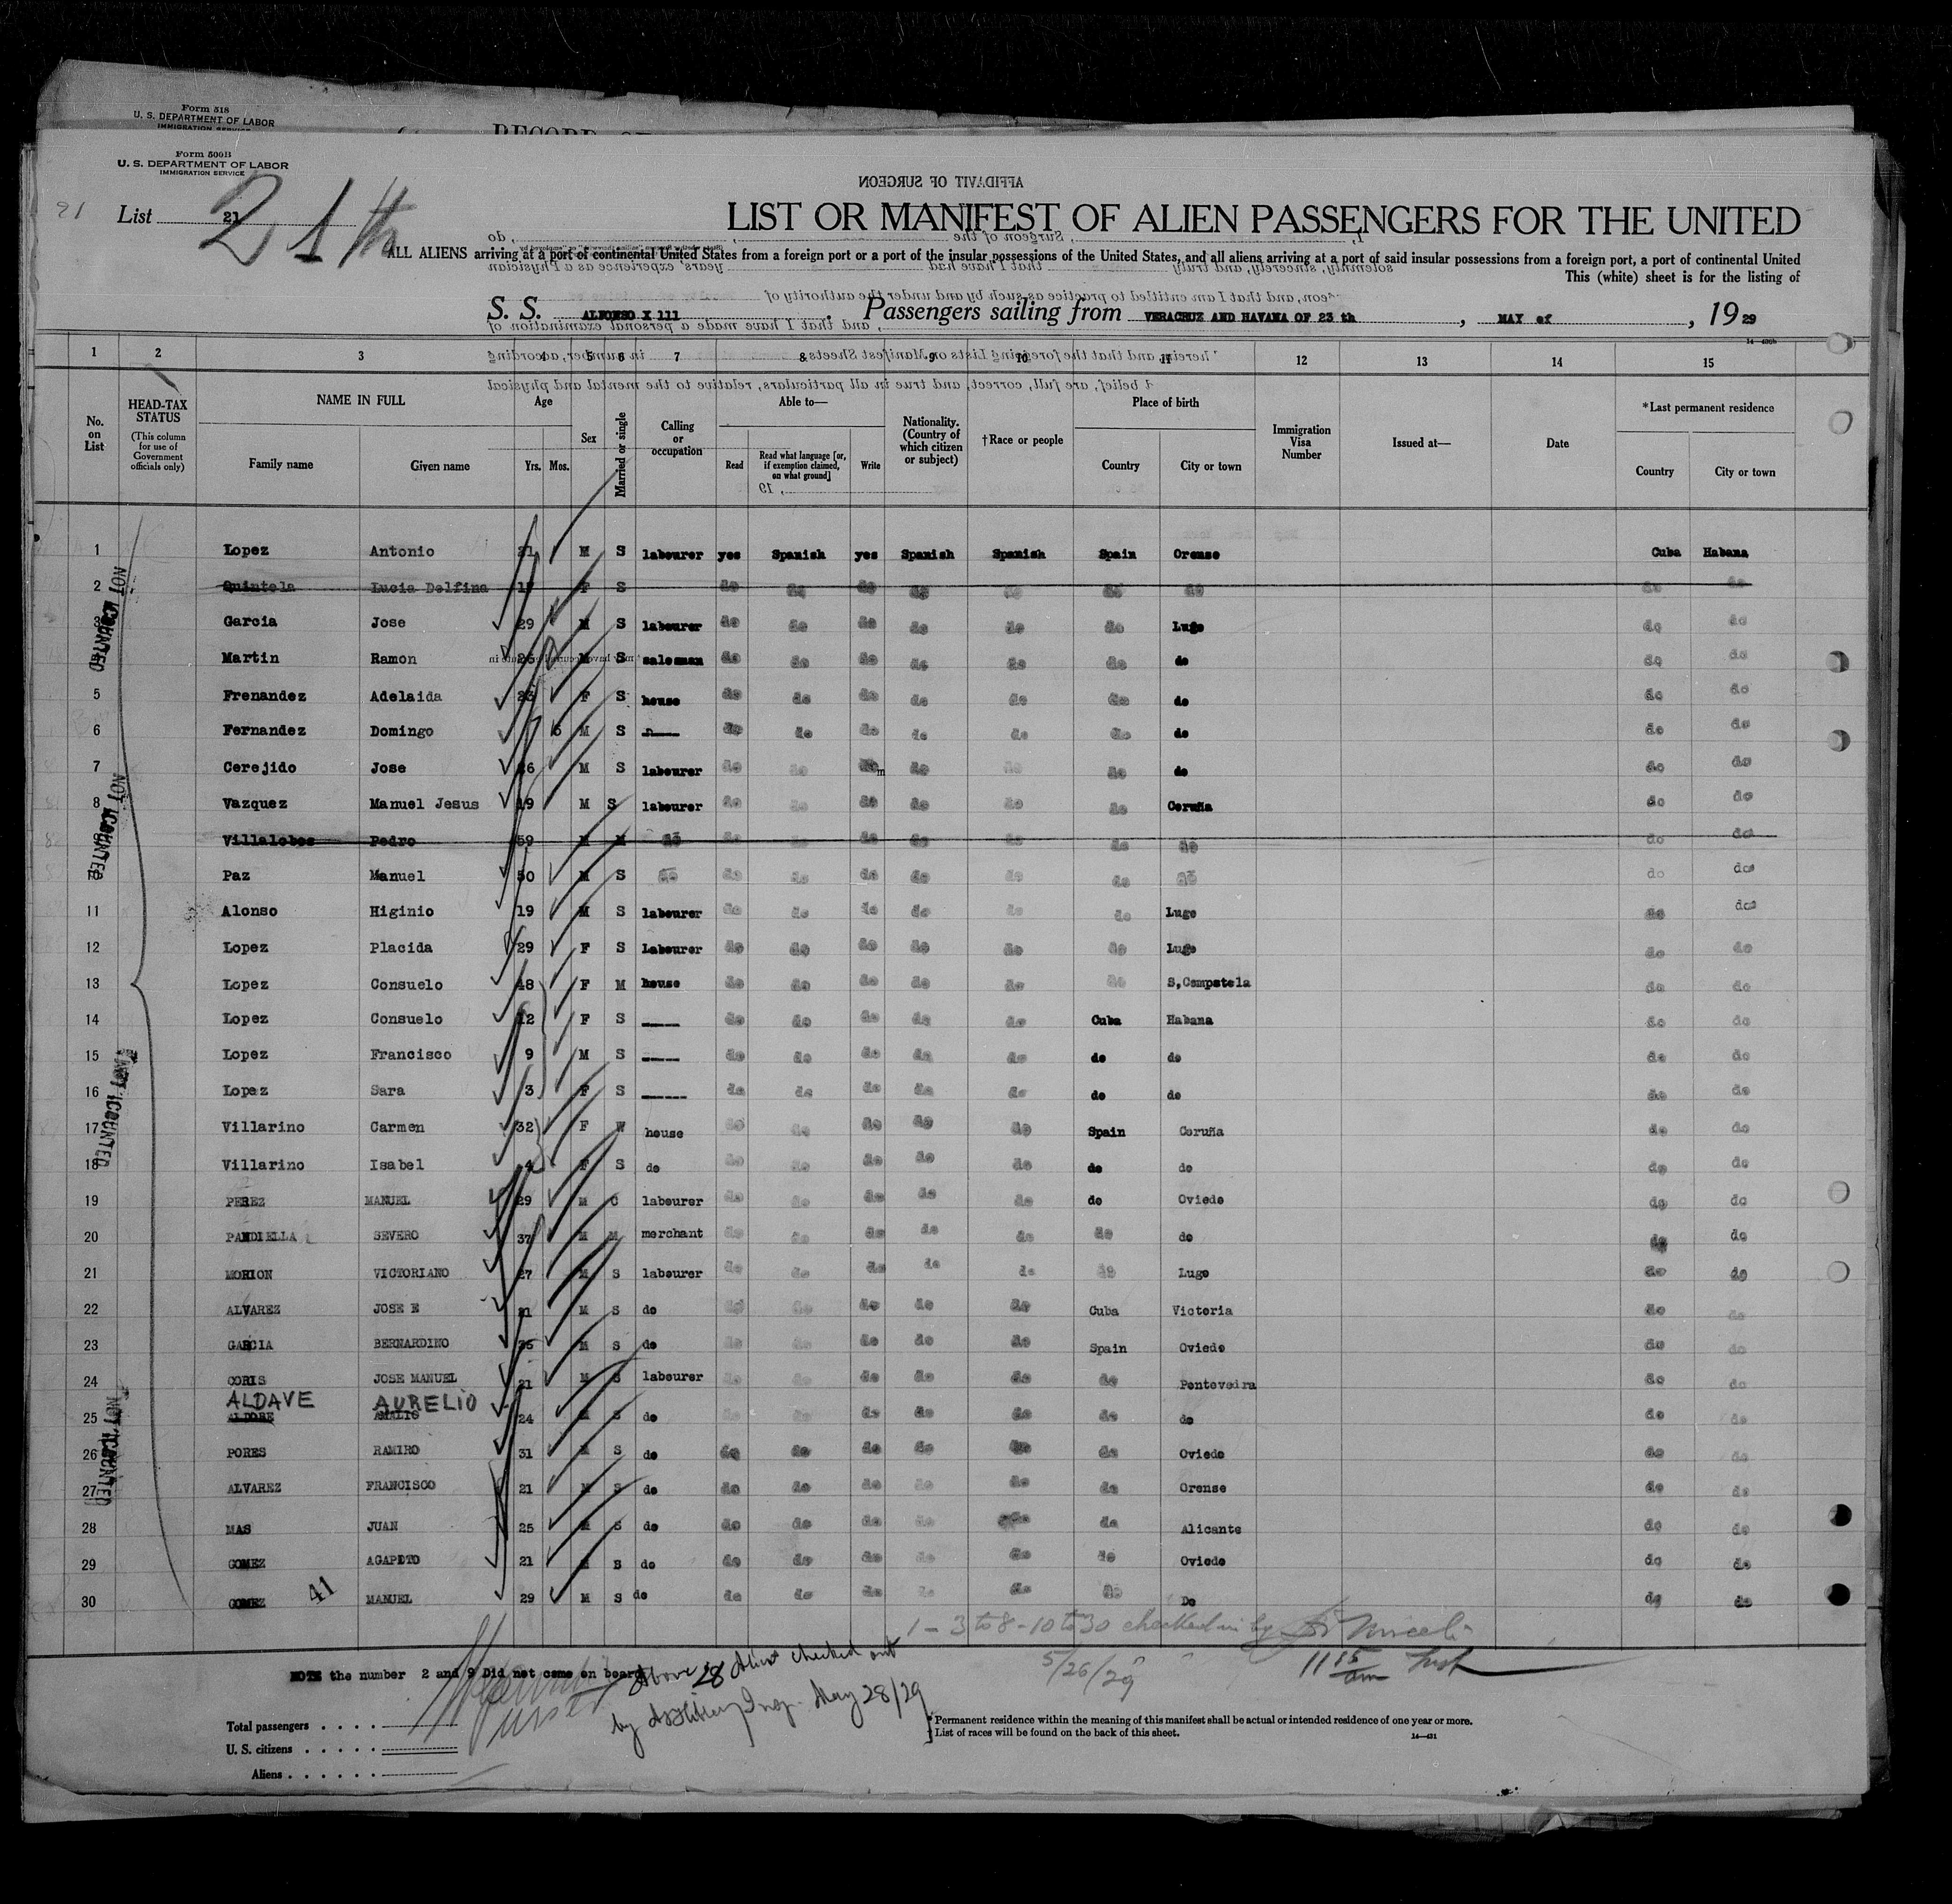 Form 518
U. S. DEPARTMENT OF LABOR
IMMIGRATION SERVICE
Form 500B
U. S. DEPARTMENT OF LABOR
IMMIGRATION SERVICE
21th
List 21
AFFIDAVIT OF SURGEON
LIST OR MANIFEST OF ALIEN PASSENGERS FOR THE UNITED
ALL ALIENS arriving at a port of continental United States from a foreign port or a port of the insular possessions of the United States, and all aliens arriving at a port of said insular possessions from a foreign port, a port of continental United
This (white) sheet is for the listing of
S. S. ALFONSO X 111 . Passengers sailing from VERACRUZ AND HAVANA OF 23 th , MAY of , 19 29
1 2 3 4 5 6 7 8 9 10 11 12 13 14 15
No. on List
HEAD-TAX STATUS (This column for use of Government officials only)
NAME IN FULL Family name Given name
Age Yrs. Mos.
Sex
Married or single
Calling or occupation
Able to— Read Read what language [or, if exemption claimed, on what ground] Write
Nationality. (Country of which citizen or subject)
†Race or people
Place of birth Country City or town
Immigration Visa Number
Issued at—
Date
*Last permanent residence Country City or town
1 Lopez Antonio 21 M S labourer yes Spanish yes Spanish Spanish Spain Orense Cuba Habana
2 Quintela Lucia Delfina F S do do do do do do do do do
3 Garcia Jose 29 M S labourer do do do do do do Lugo do do
4 Martin Ramon 26 M S salesman do do do do do do do do do
5 Frenandez Adelaida 23 F S house do do do do do do do do do
6 Fernandez Domingo 6 M S do do do do do do do do do
7 Cerejido Jose 26 M S labourer do do do do do do do do do
8 Vazquez Manuel Jesus 19 M S labourer do do do do do do Coruña do do
9 Villalobos Pedro 59 M M do do do do do do do do do do
10 Paz Manuel 50 M S do do do do do do do do do do
11 Alonso Higinio 19 M S labourer do do do do do do Lugo do do
12 Lopez Placida 29 F S Labourer do do do do do do Lugo do do
13 Lopez Consuelo 48 F M house do do do do do do S,Compstela do do
14 Lopez Consuelo 12 F S ---- do do do do do Cuba Habana do do
15 Lopez Francisco 9 M S ---- do do do do do do do do do
16 Lopez Sara 3 F S ----- do do do do do do do do do
17 Villarino Carmen 32 F W house do do do do do Spain Coruña do do
18 Villarino Isabel 4 F S do do do do do do do do do do
19 PEREZ MANUEL 29 M C labourer do do do do do do Oviedo do do
20 PANDIELLA SEVERO 37 M M merchant do do do do do do do do do
21 MORION VICTORIANO 27 M S labourer do do do do do do Lugo do do
22 ALVAREZ JOSE E 21 M S do do do do do do Cuba Victoria do do
23 GARCIA BERNARDINO 35 M S do do do do do do Spain Oviedo do do
24 CORIS JOSE MANUEL 21 M S labourer do do do do do do Pontevedra do do
ALDAVE AURELIO
25 24 M S do do do do do do do do do do
26 PORES RAMIRO 31 M S do do do do do do do Oviedo do do
27 ALVAREZ FRANCISCO 21 M S do do do do do do do Orense do do
28 MAS JUAN 25 M S do do do do do do do Alicante do do
29 GOMEZ AGAPITO 21 M S do do do do do do do Oviedo do do
30 GOMEZ 41 MANUEL 29 M S do do do do do do do Do do do
1 - 3 to 8 - 10 to 30 checked in by
5/26/29 " " 11 15 am
NOTE the number 2 and 9 Did not come on board
Above 28 Aliens checked out
by Insp. May 28/29
Total passengers . . . .
U. S. citizens . . . . .
Aliens . . . . . .
* Permanent residence within the meaning of this manifest shall be actual or intended residence of one year or more.
† List of races will be found on the back of this sheet.
14—431